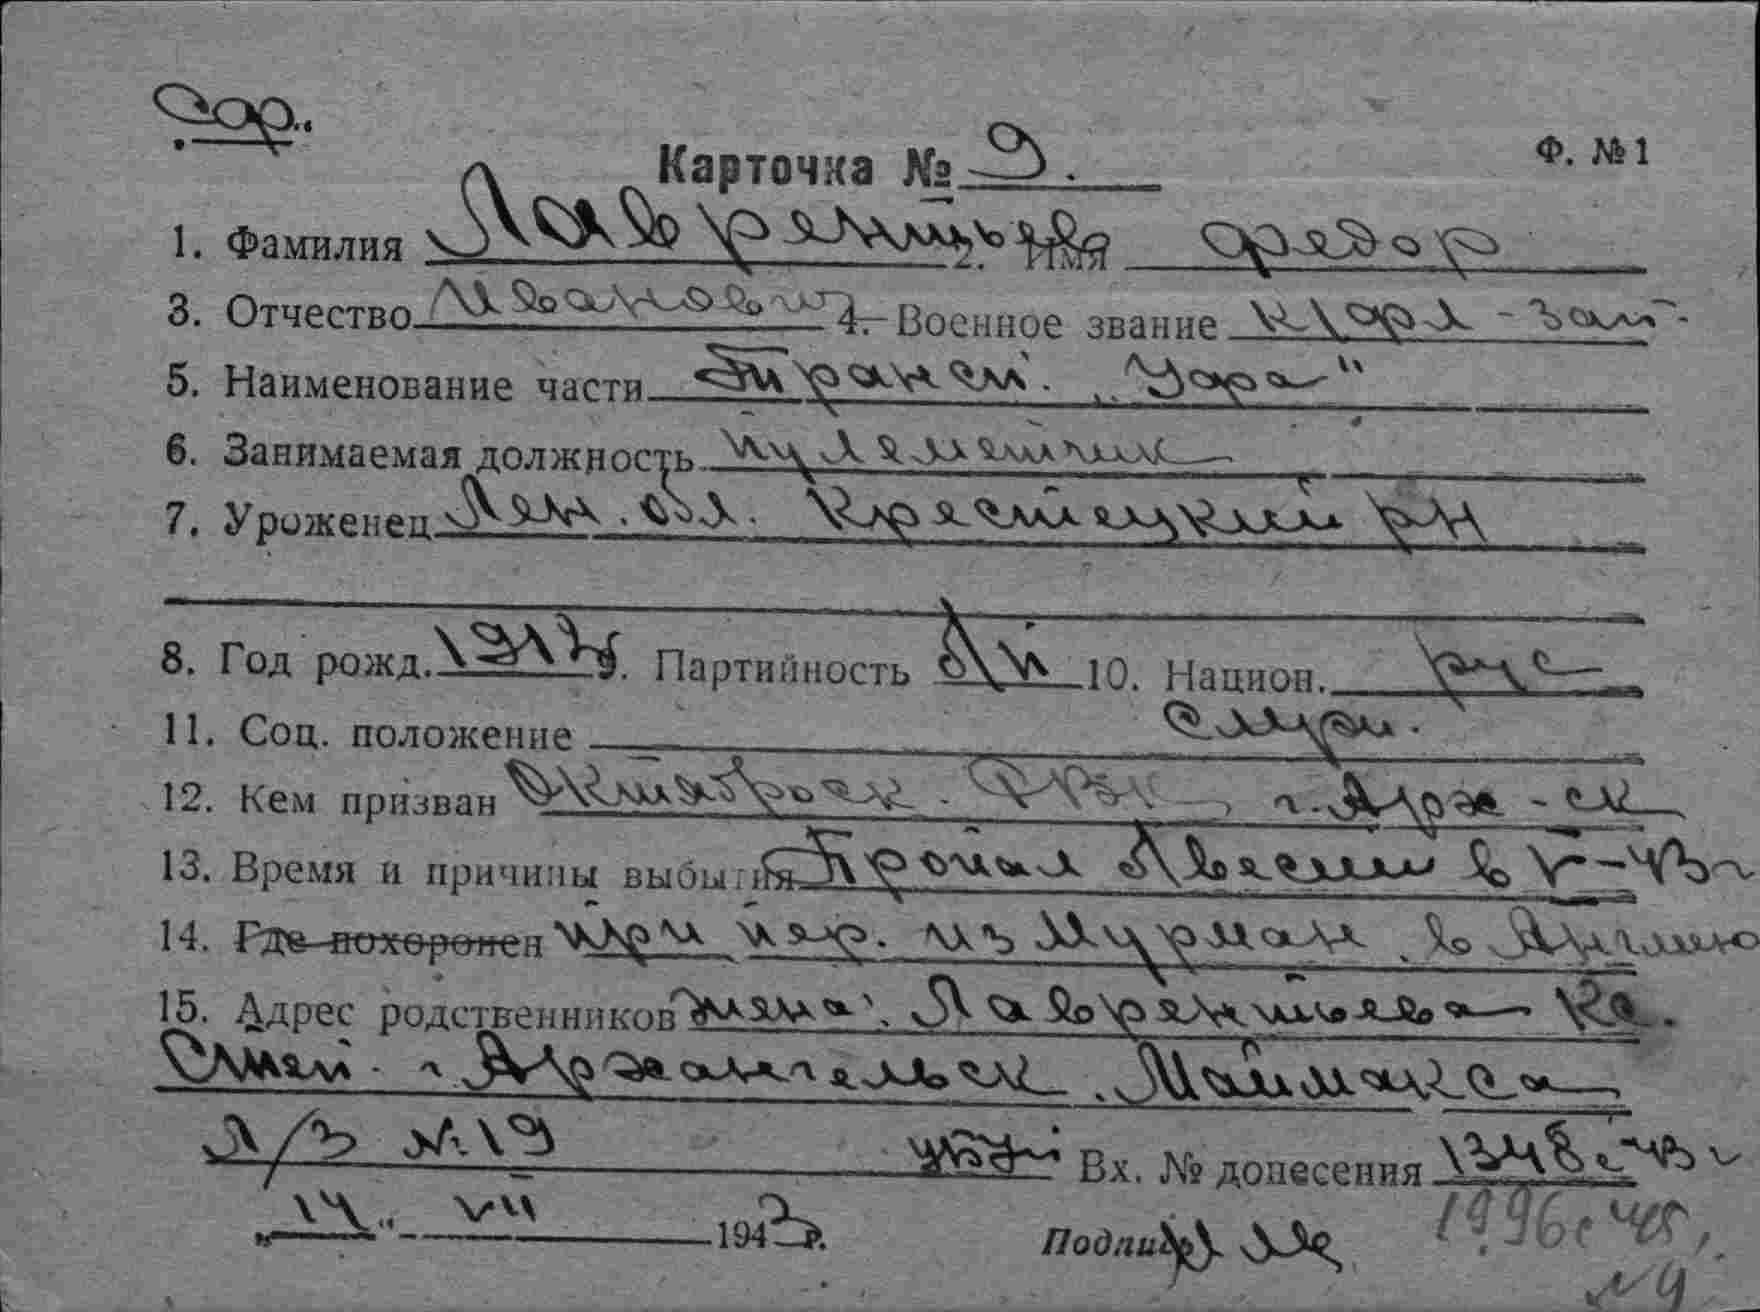 Сар.
Карточка № 9. Ф. № 1
1. Фамилия Лаврентьев 2. Имя Федор
3. Отчество Иванович 4. Военное звание к/арл-зап.
5. Наименование части Трансп. „Уфа"
6. Занимаемая должность пулеметчик
7. Уроженец Лен. обл. Крестецкий рн
8. Год рожд. 1912 9. Партийность б/п 10. Национ. рус
11. Соц. положение служ.
12. Кем призван Октябрьск. РВК г. Арх-ск
13. Время и причины выбытия Пропал б/вести в V-43 г
14. Где похоронен при пер. из Мурман. в Англию
15. Адрес родственников жена: Лаврентьева Кс.
Степ. г. Архангельск. Маймакса
Л/З № 19 Вх. № донесения 1348с 43 г
„14" VII 1943 г. Подпись
1996с 45
№ 9